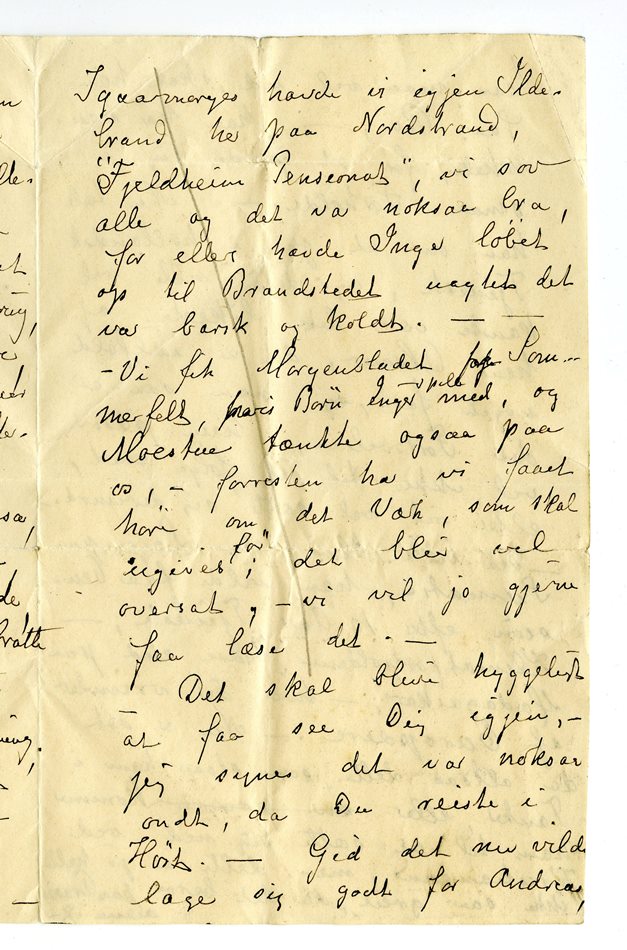 Igaarmorges havde vi igjen Ilde-
brand he paa Nordstrand,
"Fjeldheim Penseonat", vi sov
alle og det va noksaa bra,
for ellers havde Inger löbet
op til Brandstedet uagtet det
var barsk og koldt. — —
- Vi fik Morgenbladet fra Som-
merfelt, hvis Börn Inger spiller med, og
Moestue tænkte ogsaa paa
os, - forresten ha vi faaet
höre om det Værk, som skal
ugives för; det blir vel
oversat, - vi vil jo gjerne
faa læse det. —
Det skal blive hyggeligt
- at faa see Dig igjen, -
jeg synes det var noksaa
ondt, da Du reiste i
Höst. — Gid det nu vilde
lage sig godt for Andreas,